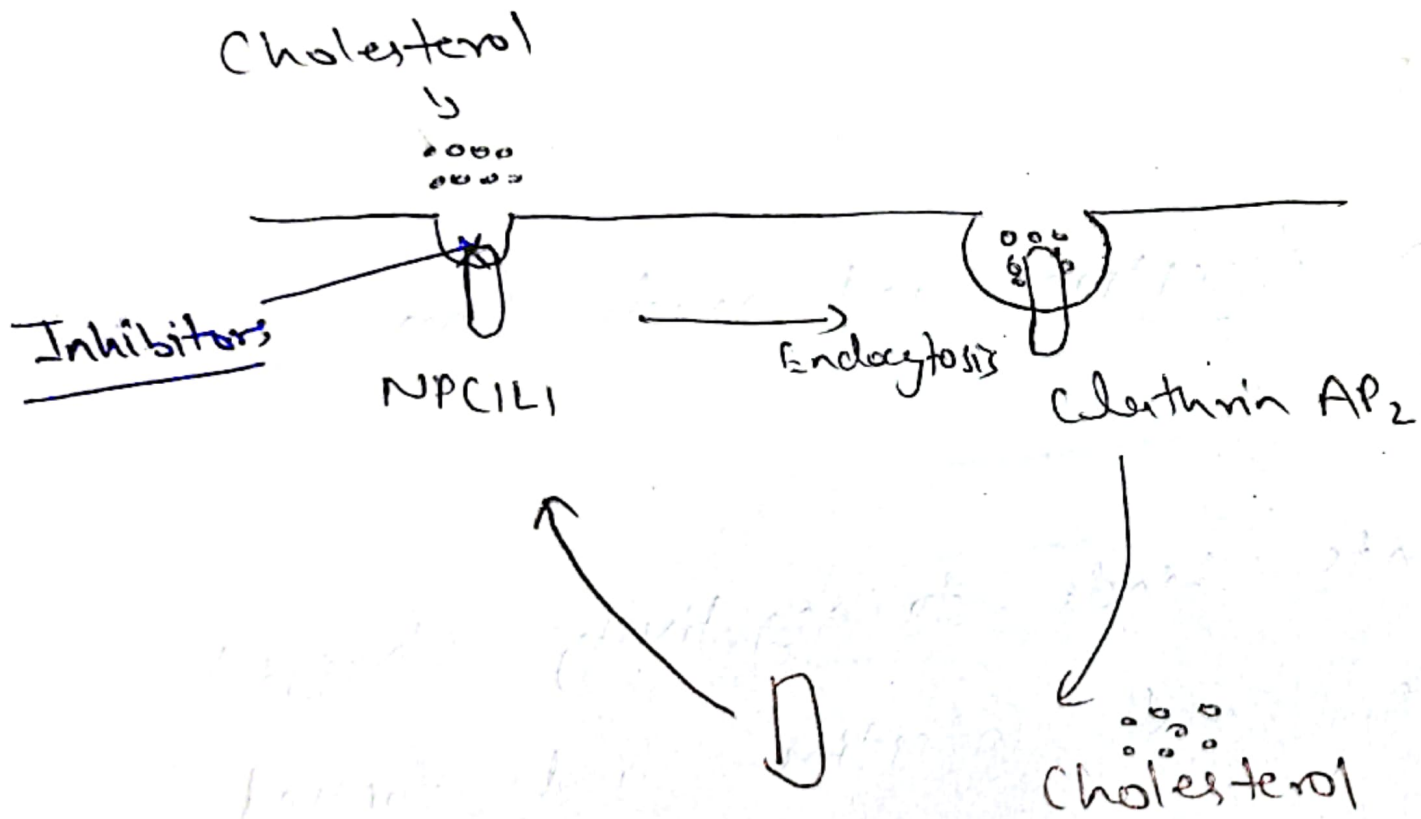 Cholesterol
Inhibitors
NPC1L1
Endocytosis
Clathrin AP2
Cholesterol